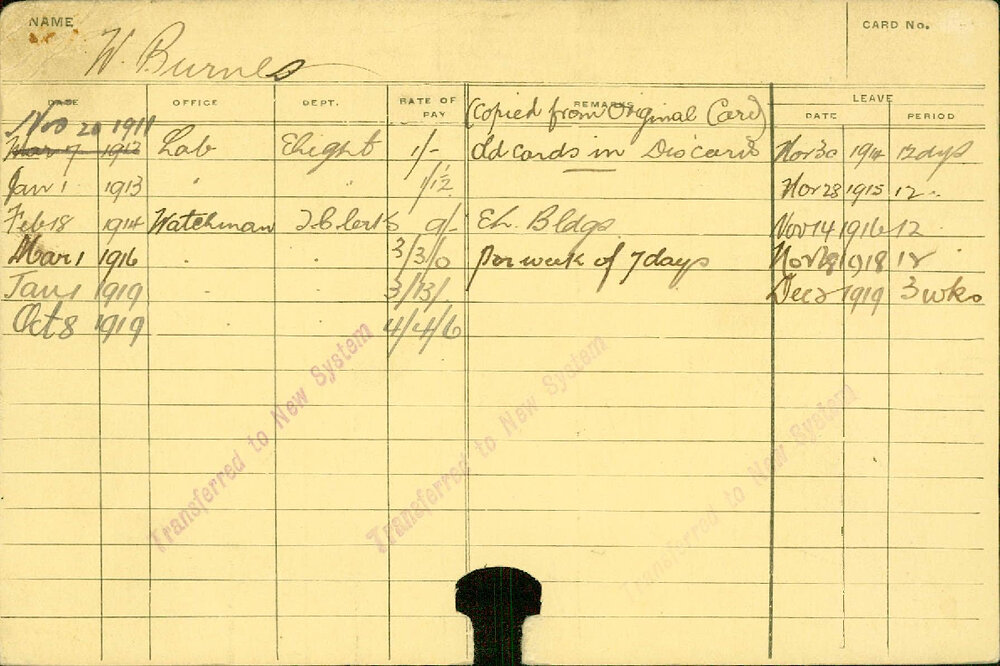 NAME
CARD No.
W. Burnes
DATE OFFICE DEPT. RATE OF PAY REMARKS LEAVE
DATE PERIOD
(Copied from Original Card)
Nov 20 1911
Mar 7 1912 Lab Elight 1/- Old cards in Discards Nov 30 1914 12 dys
Jan 1 1913 " " 1/1½ Nov 28 1915 12 "
Feb 18 1914 Watchman T. Clerks 9/- EL. Bldgs Nov 14 1916 12
Mar 1 1916 " " 3/3/0 per week of 7 days Nov 1918 12
Jan 1 1919 " " 3/13/ Dec 2 1919 3 wks
Oct 8 1919 " " 4/4/6
Transferred to New System
Transferred to New System
Transferred to New System